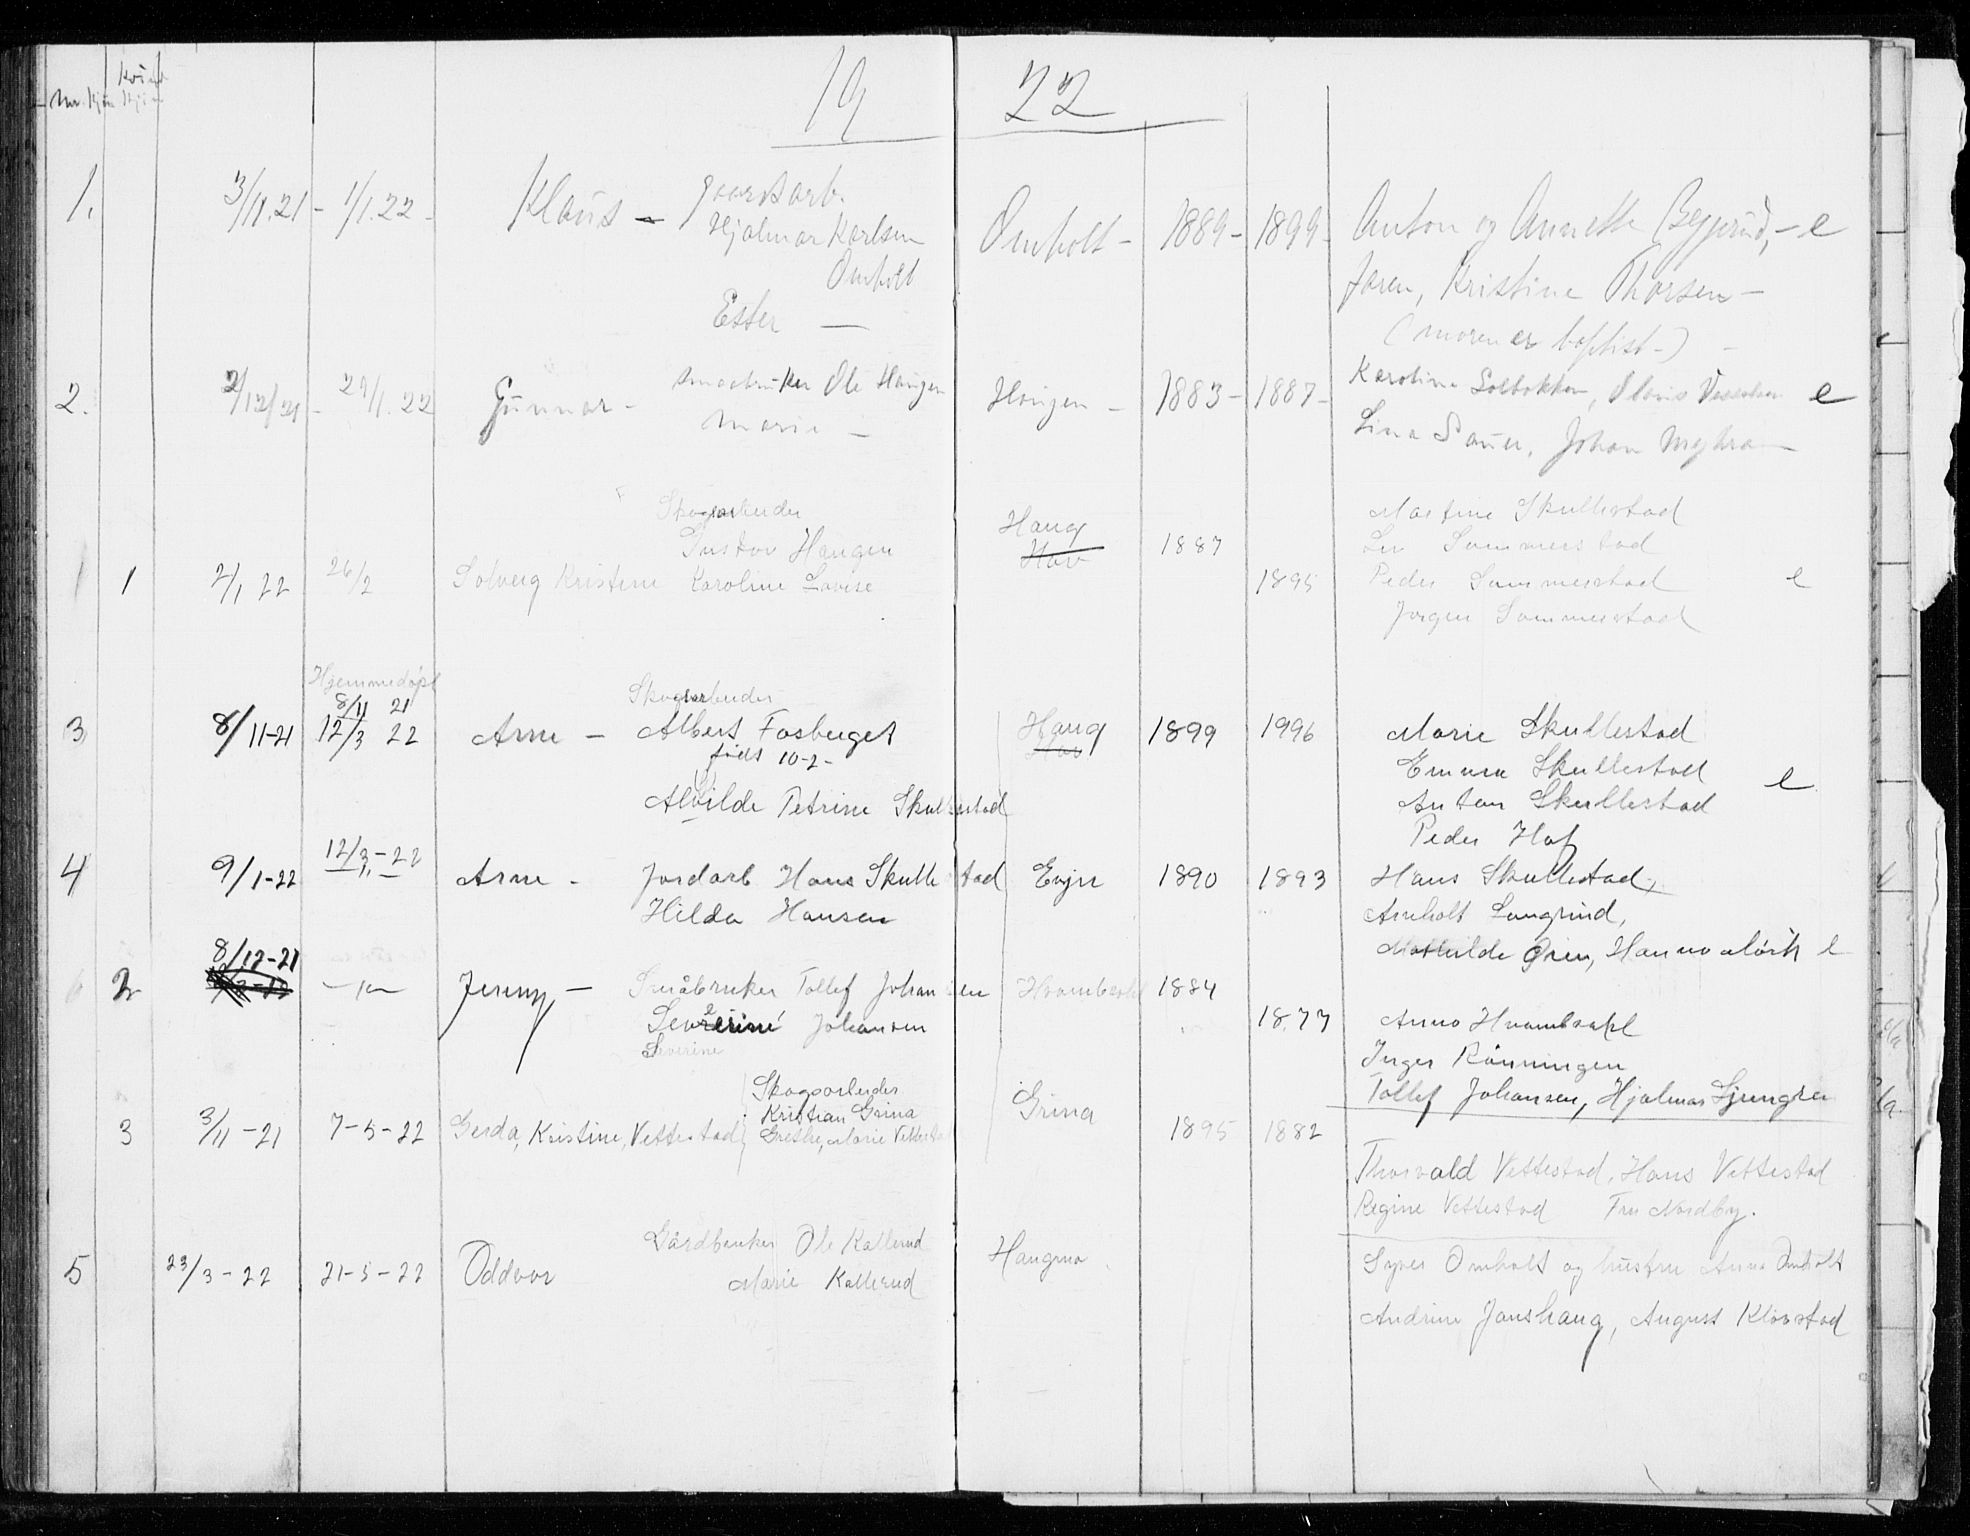 19 22
Nr. Kjøn
1. 3/11.21 - 1/1.22 - Klaus - gaardarb. Omholt - 1889 - 1899 - Anton og Annette - e
Hjalmar Karlsen
Omholt
Ester —
Kristine Thorsen -
(moren er baptist -)
2. 2/12/21 - 29/1.22 Gunnar - smaabruker Ole Haugen Haugen - 1883 - 1887 - Karoline Solbakken, e
Marie —
Lina Johan Myhra —
Skogsarbeider
Gustav Haugen
1 2/1 22 26/2 Solveig Kristine Karoline Lovise
Haug
Hov
1887 1895
Martine Skullestad
Sommerstad
Peder Sommerstad e
Jørgen Sommerstad
Hjemmedøpt
8/11 21
3 8/11-21 12/3 22 Arne -
Skogsarbeider
Albert Fosberget
født 10-2-
Alvilde Petrine Skullestad
Haug
Hov
1899 1996
Marie Skullestad
Emma Skullestad
Anton Skullestad
Peder Hof
e
4 9/1-22 12/3-22 Arne - Jordarb Hans Skullestad Evjn 1890 1893 Hans Skullestad,
Hilda Hansen
Arnholt Langrind,
Mathilde Øien, Hanna Mörk e
8/12-21
2 Jenny - Småbruker Tollef Johansen 1884
Severine Johansen
Severine
1877
Anna
Inger Rönningen
Tollef Johansen, Hjalmar Ljungren
3 3/11-21 7-5-22 Gerda, Kristine, Vettestad
Skogsarbeider
Kristian Grina
Grethe, Marie Vettestad
Grina 1895 1882
Thorvald Vettestad, Hans Vettestad
Regine Vettestad Fru Nordby.
5 23/3-22 21-5-22 Oddvar
Gårdbruker Ole Kallerud
Marie Kallerud
Haugmo
Syver Omholt og hustru Anna Omholt
Andrine Janshaug, August Klöвstad